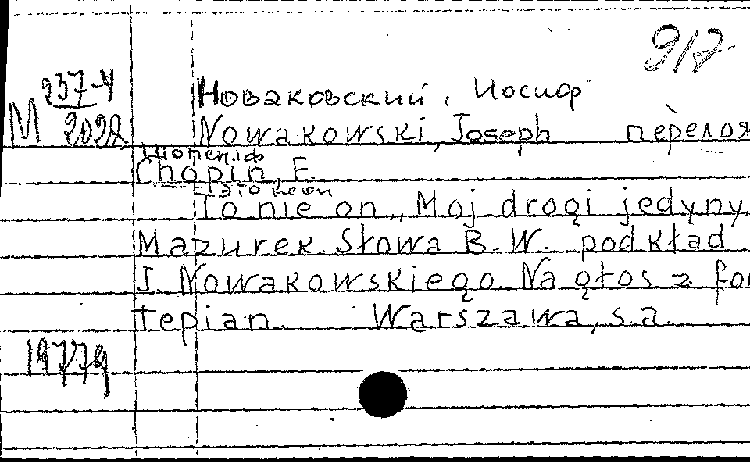 917
М 237-4
2028
Новаковский, Иосиф
Nowakowski, Joseph перелож
Шопен, Ф
Chopin, F.
Это не он
To nie on, Moj drogi jedyny
Mazurek. Słowa B.W. podkład
J. Nowakowskiego Na głos z for
tepian. Warszawa, s.a.
19779